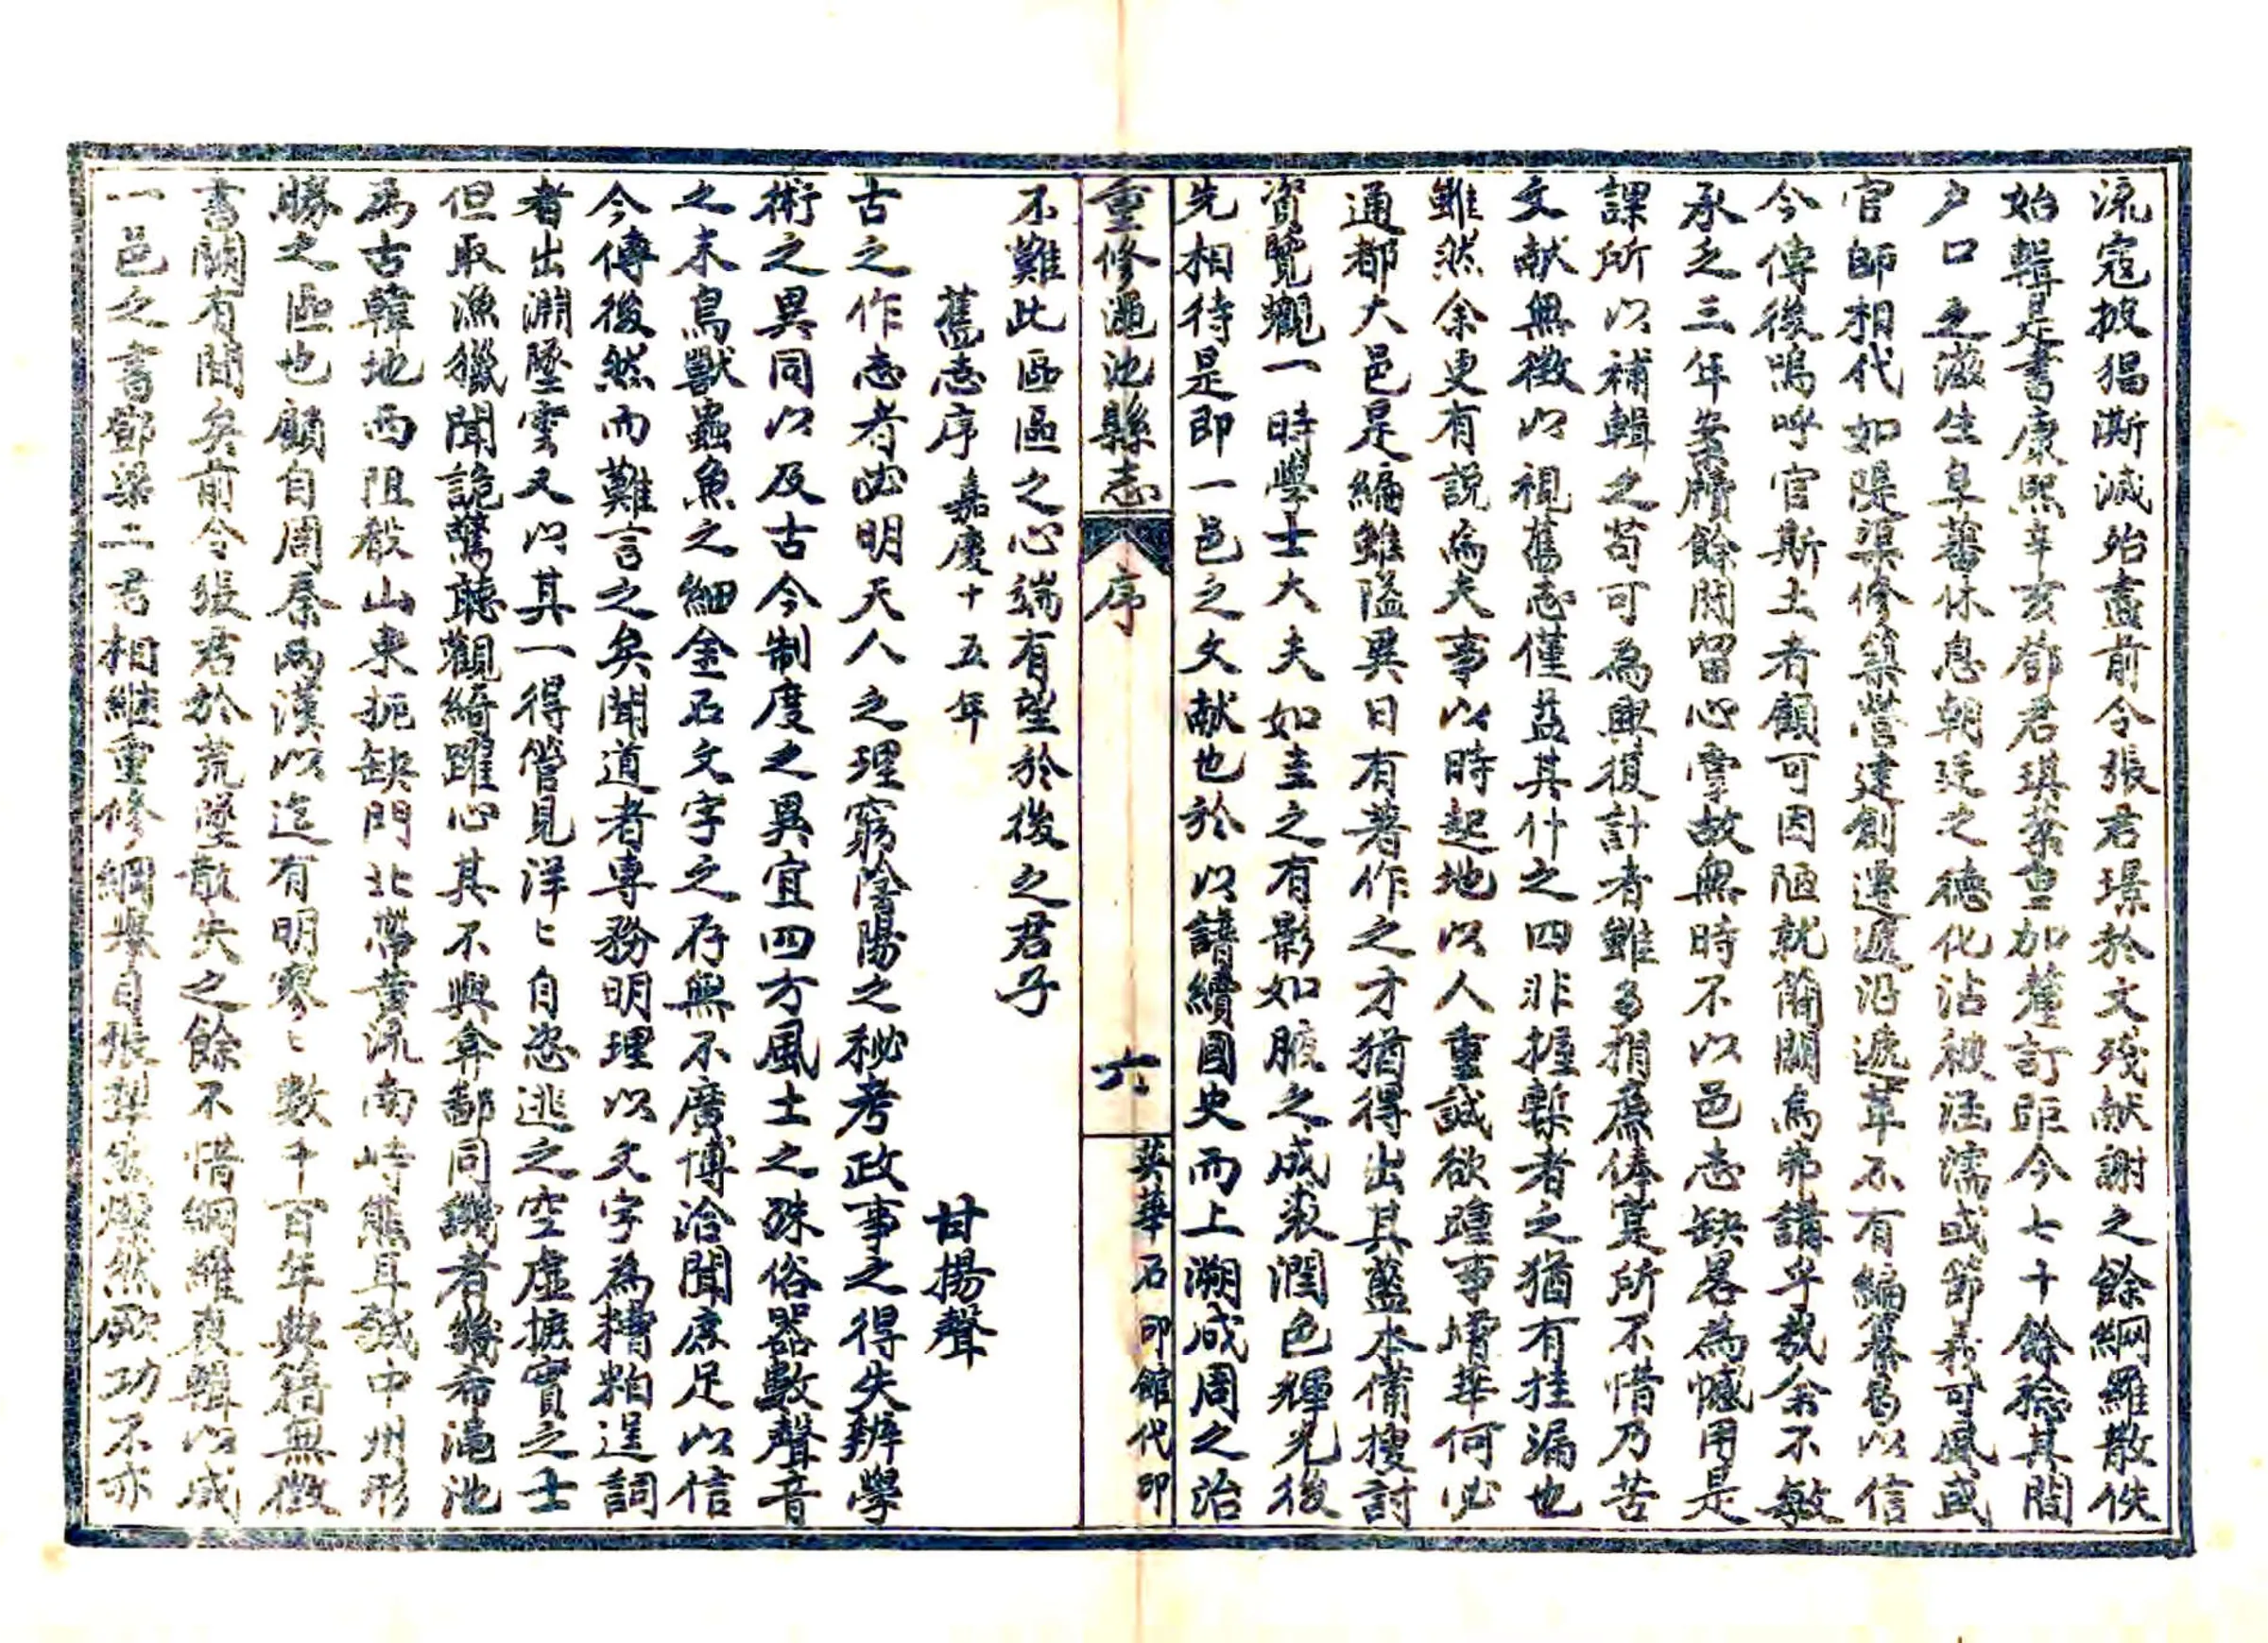 流寇披猖澌滅殆盡前令張君璟於文殘献謝之餘綱羅散佚
始輯是書康熙辛亥鄧君琪棻重加釐訂距今七十餘稔其間
户口之滋生阜蕃休息朝廷之德化沾被涵濡或節義可風或
官師相代如隄渠修築營建創遷遞沿遞革不有編纂曷以信
今傳後嗚呼官斯土者顧可因陋就簡闕焉弗講乎哉余不敏
承乏三年案牘餘閒留心掌故無時不以邑志缺畧為憾用是
課所以補輯之苟可為興復計者雖多捐廉俸寔所不惜乃苦
文献無徵以視舊志僅益其什之四非握槧者之猶有挂漏也
雖然余更有説焉夫事以時起地以人重誠欲踵事增華何必
通都大邑是編雖隘異日有著作之才猶得出其藍本備搜討
資覽觀一時學士大夫如圭之有影如腋之成裘潤色輝光後
先相待是即一邑之文献也於以譜續國史而上溯成周之治
重修澠池縣志 序 六 英華石印館代印
不難此區區之心端有望於後之君子
舊志序 嘉慶十五年 甘揚聲
古之作志者必明天人之理窮陰陽之秘考政事之得失辨學
術之異同以及古今制度之異宜四方風土之殊俗器數聲音
之末鳥獸蟲魚之細金石文字之存無不廣博洽聞庶足以信
今傳後然而難言之矣聞道者專務明理以文字為糟粕逞詞
者出淵墜雲又以其一得管見洋々自恣逃之空虛摭實之士
但取漁獵聞詭驚聽觀綺躍心其不與弇鄙同譏者幾希澠池
為古韓地西阻殽山東扼缺門北帶黄流南峙熊耳誠中州形
勝之區也顧自周秦兩漢以迄有明寥々數千百年典籍無徵
書闕有間矣前令張君於荒墜散失之餘不惜綱羅裒輯以成
一邑之書鄧梁二君相継重修綱舉目張犁然燦然厥功不亦